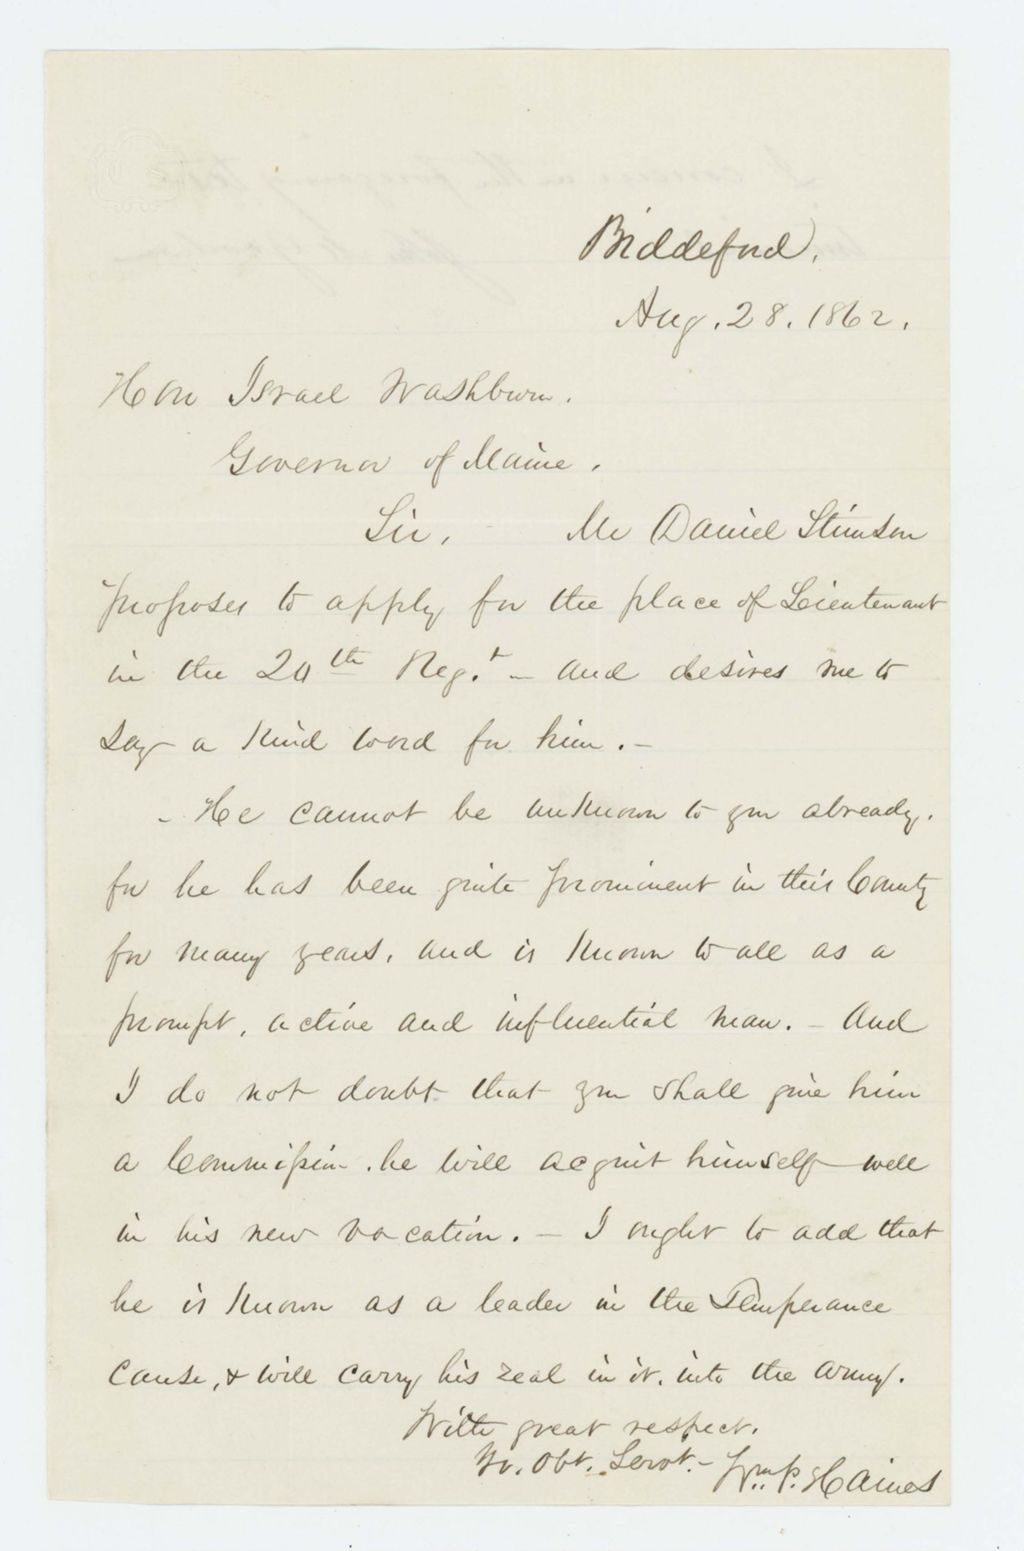 Biddeford,
Aug. 28. 1862.
Hon Israel Washburn.
Governor of Maine.
Sir, Mr Daniel Stimson
proposes to apply for the place of Lieutenant
in the 20th Regt - and desires me to
say a kind word for him. -
- He cannot be unknown to you already.
for he has been quite prominent in this County
for many years, and is known to all as a
prompt, active and influential man. - And
I do not doubt that you shall give him
a Commission. he will acquit himself well
in his new vocation. - I ought to add that
he is known as a leader in the Temperance
Cause, & will carry his zeal in it. into the army.
With great respect.
Yr. Obt. Servt. - Wm. P. Haines